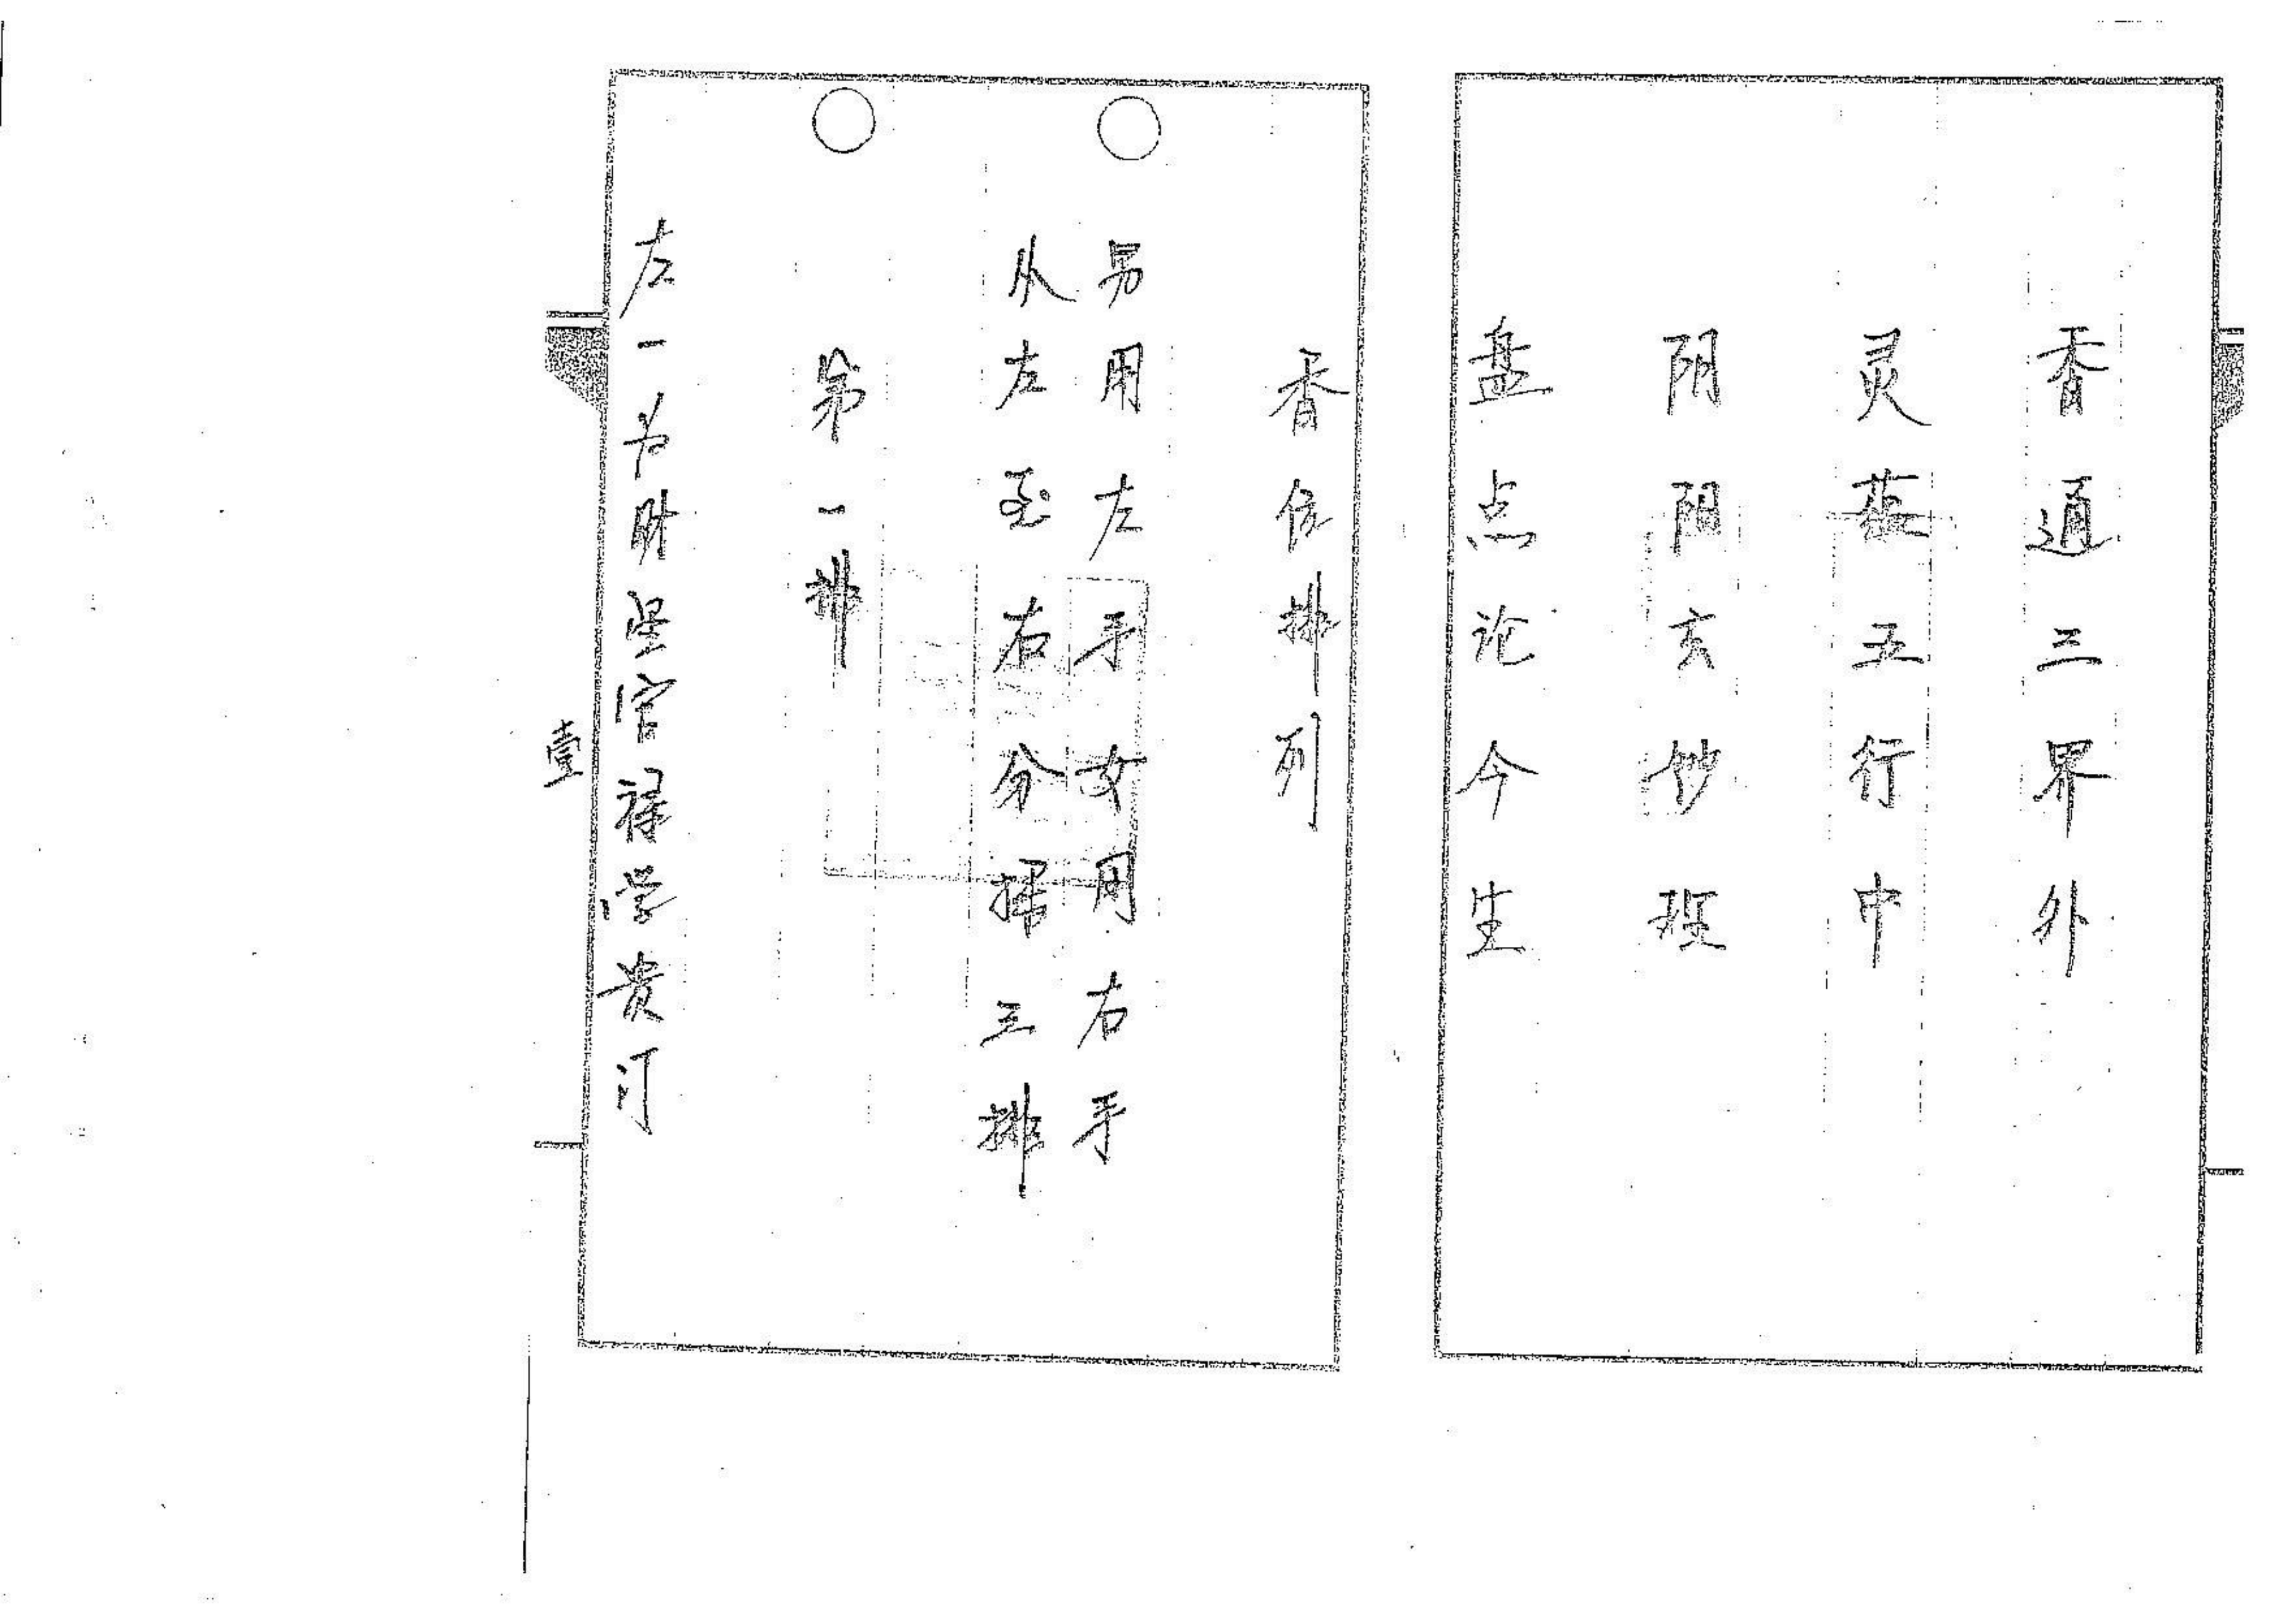 香通三界外
灵蕴五行中
阴阳玄妙理
盘点论今生
香位排列
男用左手女用右手
从左至右分插三排
第一排
左一为财 官禄学贵
壹